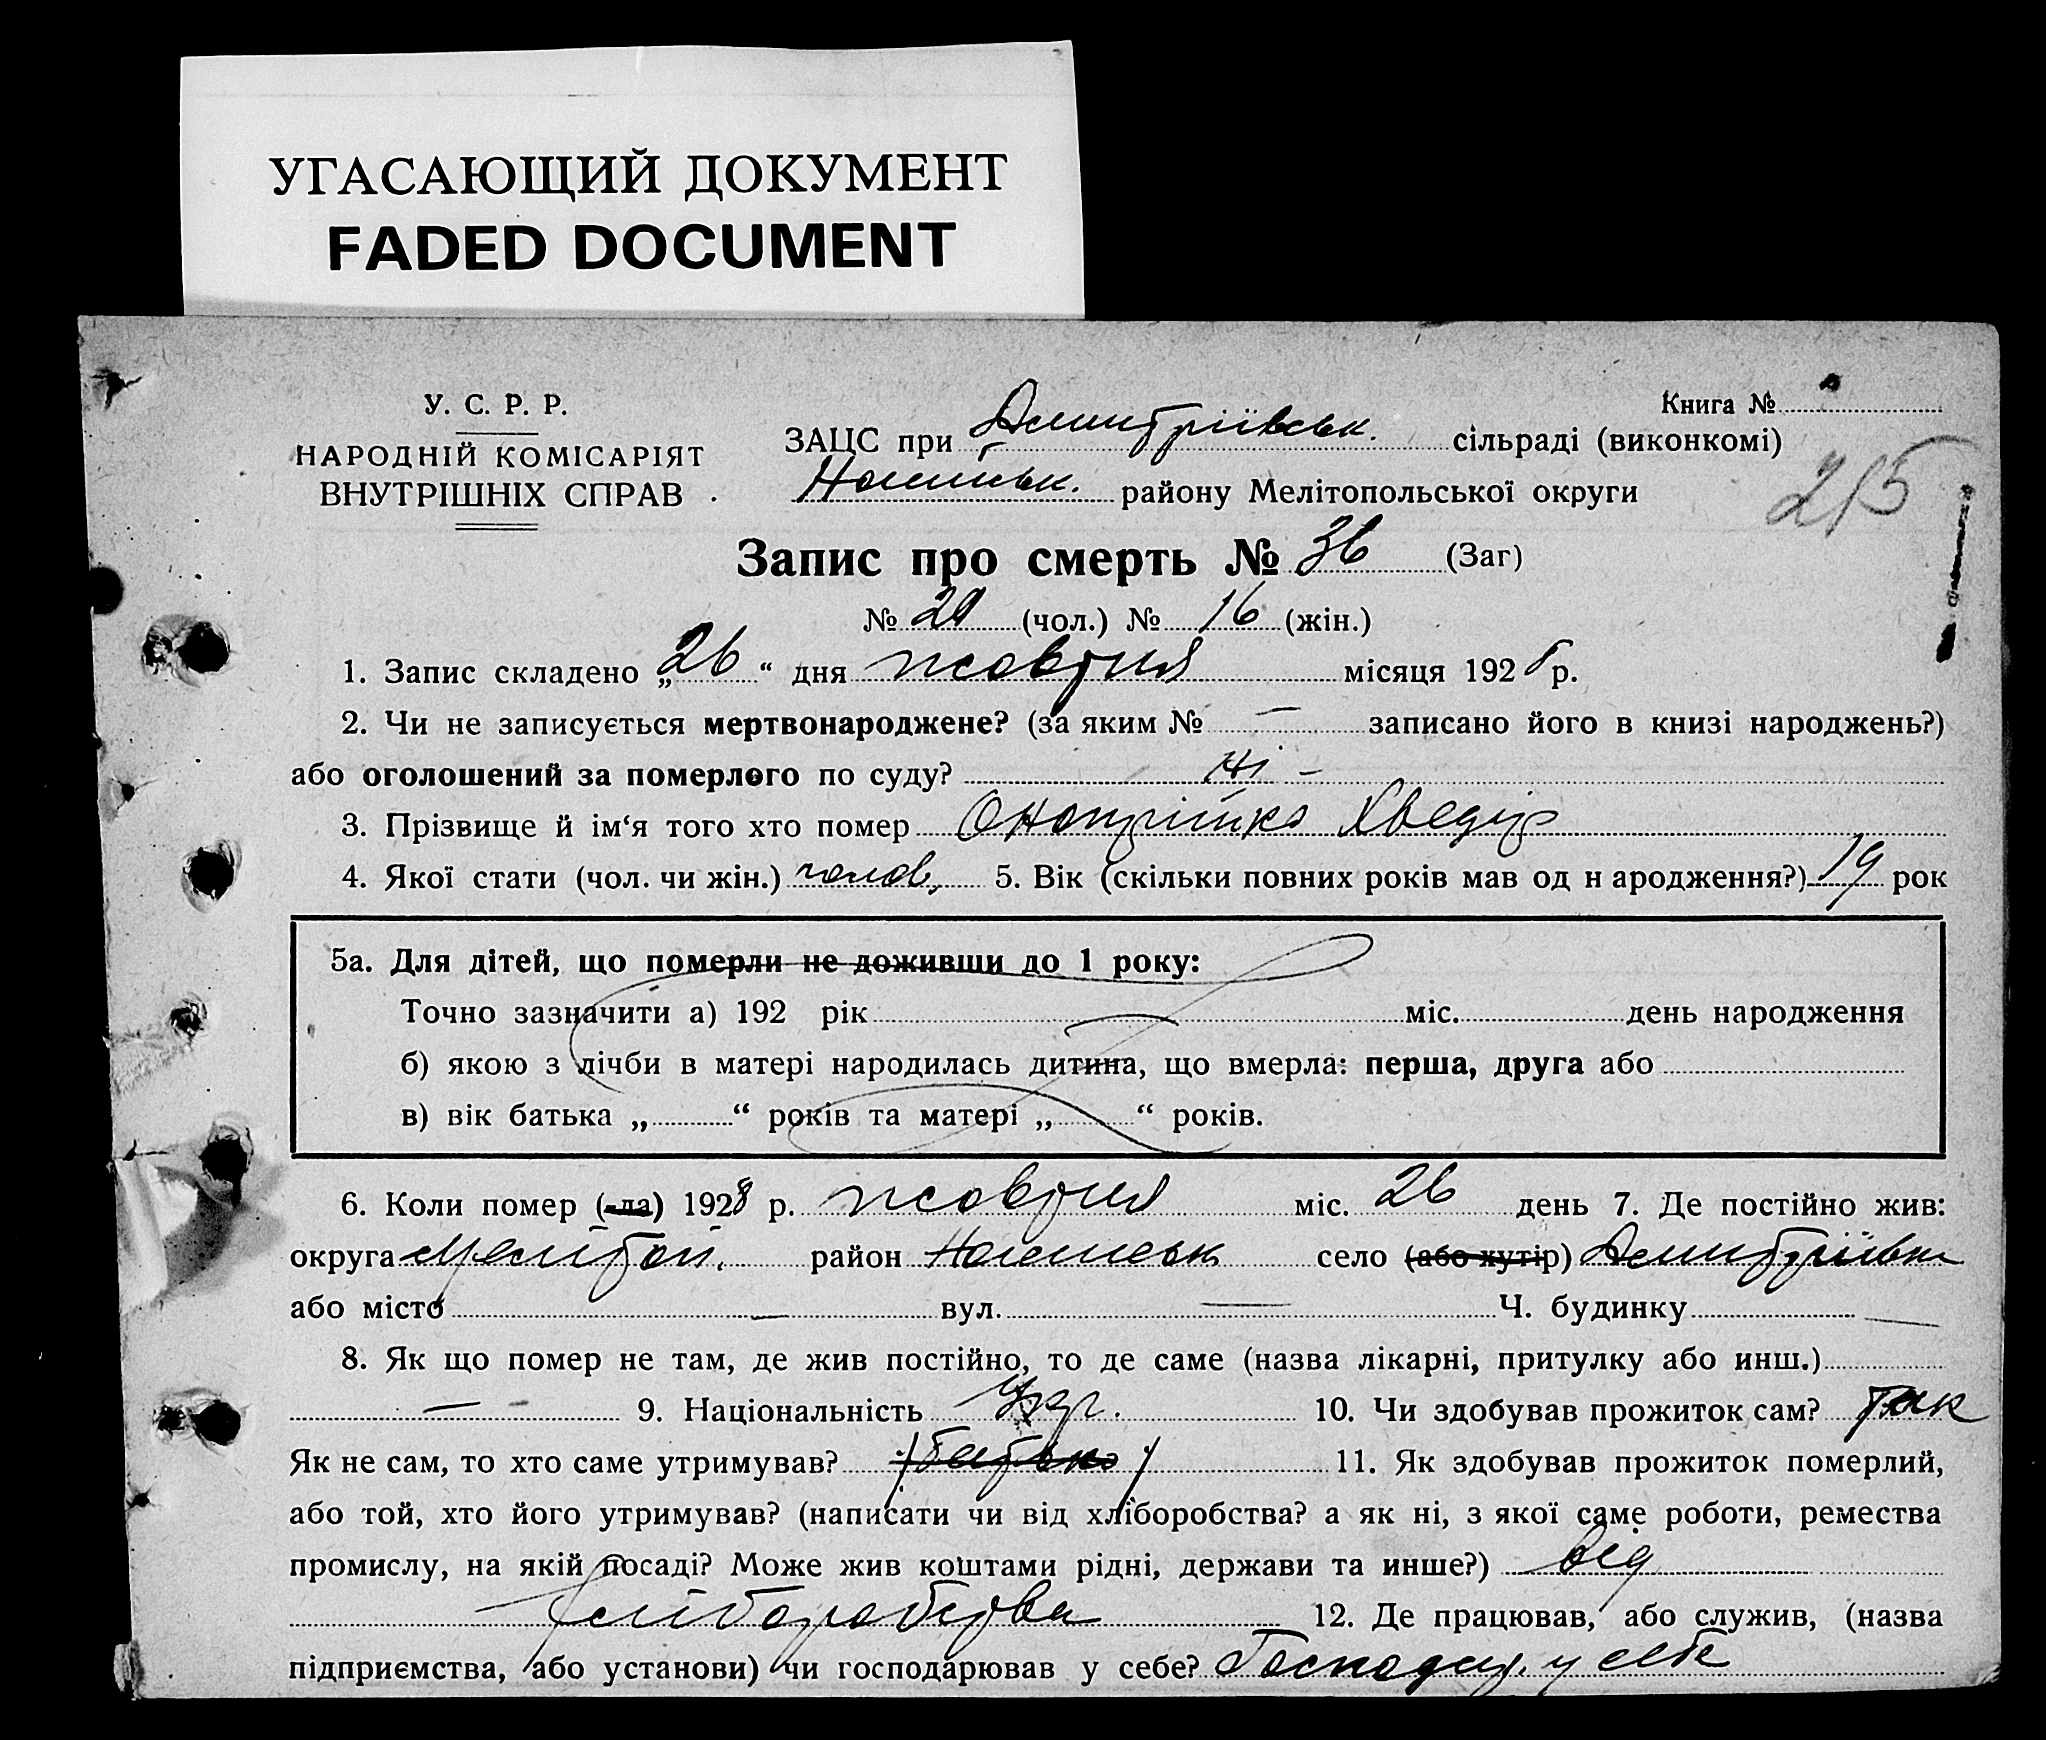 УГАСАЮЩИЙ ДОКУМЕНТ
FADED DOCUMENT
У. С. Р. Р.
НАРОДНІЙ КОМІСАРІЯТ
ВНУТРІШНІХ СПРАВ
Книга №
ЗАЦС при Дмитріївськ. сільраді (виконкомі)
району Мелітопольської округи
215
Запис про смерть № 36 (Заг)
№ 20 (чол.) № 16 (жін.)
1. Запис складено „26“ дня жовтня місяця 1928 р.
2. Чи не записується мертвонароджене? (за яким № — записано його в книзі народжень?)
або оголошений за померлого по суду? ні –
3. Прізвище й ім‘я того хто помер Онопрійко Хведір
4. Якої стати (чол. чи жін.) чолов. 5. Вік (скільки повних років мав од н ародження?) 19 рок
5а. Для дітей, що померли не доживши до 1 року:
Точно зазначити а) 192 рік міс. день народження
б) якою з лічби в матері народилась дитина, що вмерла: перша, друга або
в) вік батька „ “ років та матері „ “ років.
6. Коли помер (-ла) 1928 р. жовтня міс. 26 день 7. Де постійно жив:
округа Мелітоп. район село (або хутір) Дмитріївка
або місто — вул. — Ч. будинку —
8. Як що помер не там, де жив постійно, то де саме (назва лікарні, притулку або инш.)
— - 9. Національність Укр. 10. Чи здобував прожиток сам? так
Як не сам, то хто саме утримував? (батько) 11. Як здобував прожиток померлий,
або той, хто його утримував? (написати чи від хліборобства? а як ні, з якої саме роботи, ремества
промислу, на якій посаді? Може жив коштами рідні, держави та инше?) від
хліборобства 12. Де працював, або служив, (назва
підприємства, або установи) чи господарював у себе? Господар. у себе